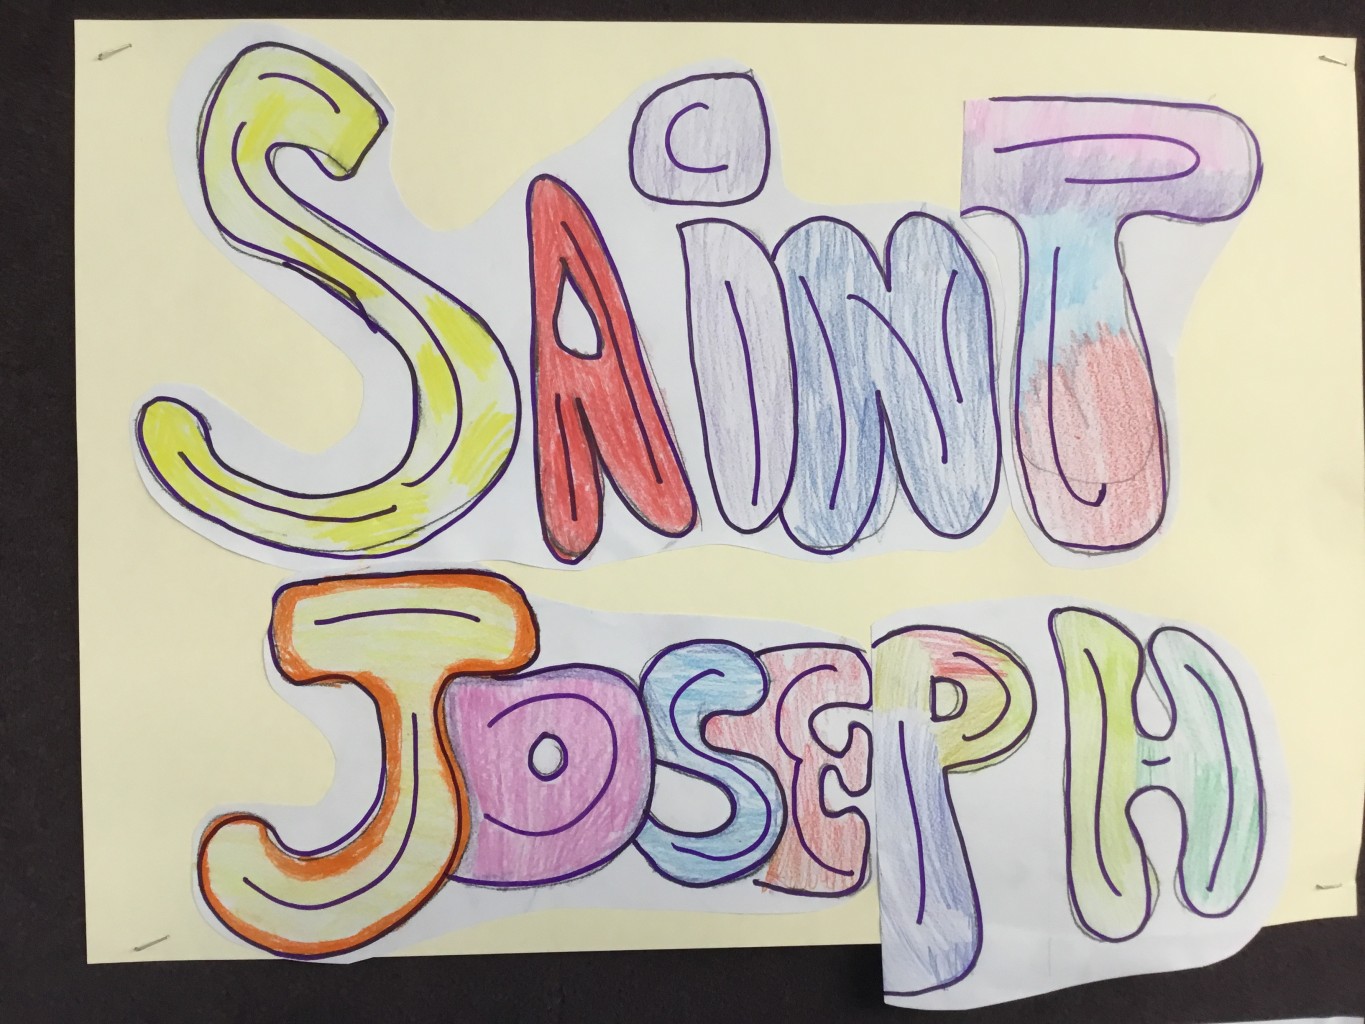 SAiNT
JOSEPH